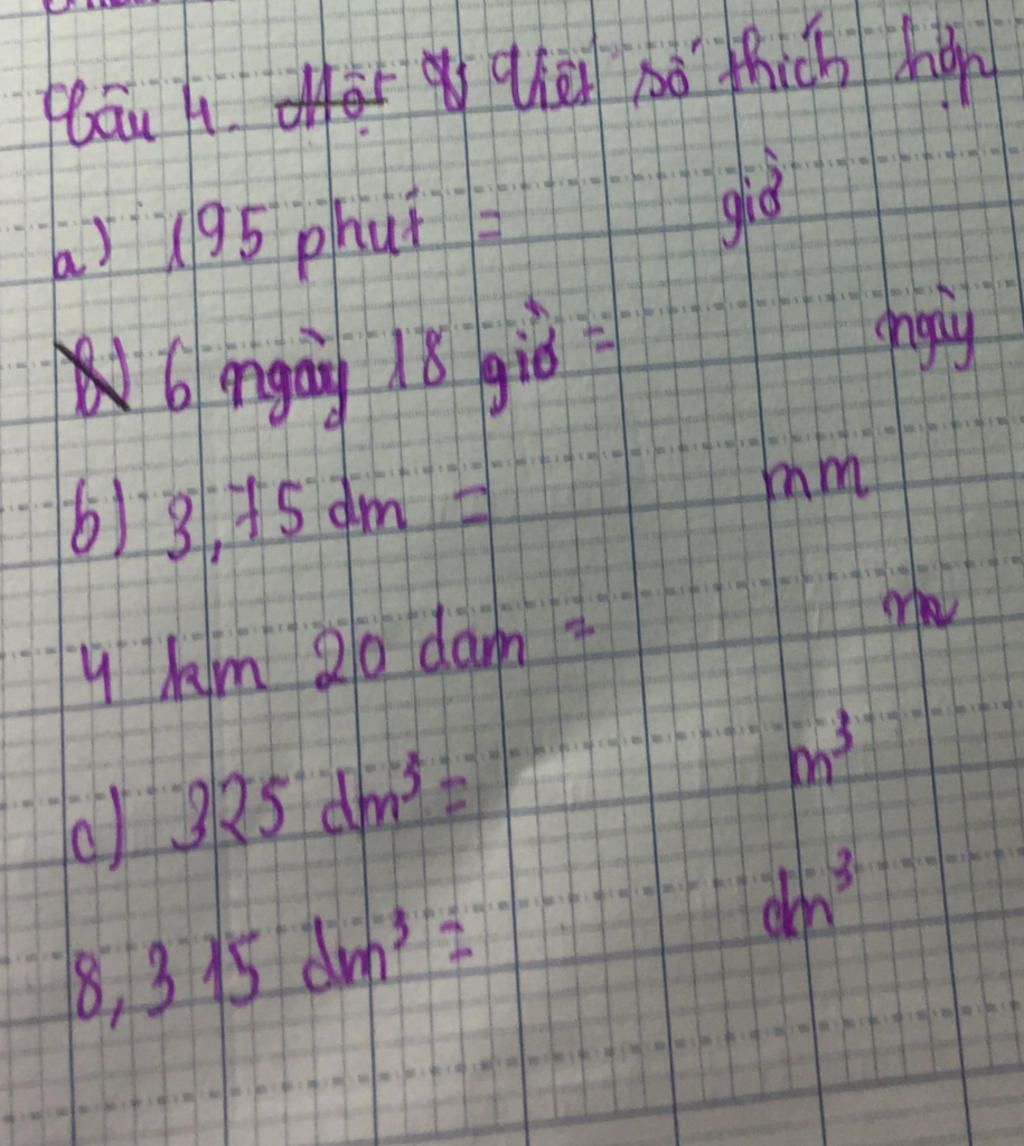 Câu 4. Một V Viết số thích hợp
a) 195 phút = giờ
b) 6 ngày 18 giờ = ngày
b) 3,75 dm = mm
4 km 20 dam = m
c) 325 dm³ = m³
8,315 dm³ = dm³